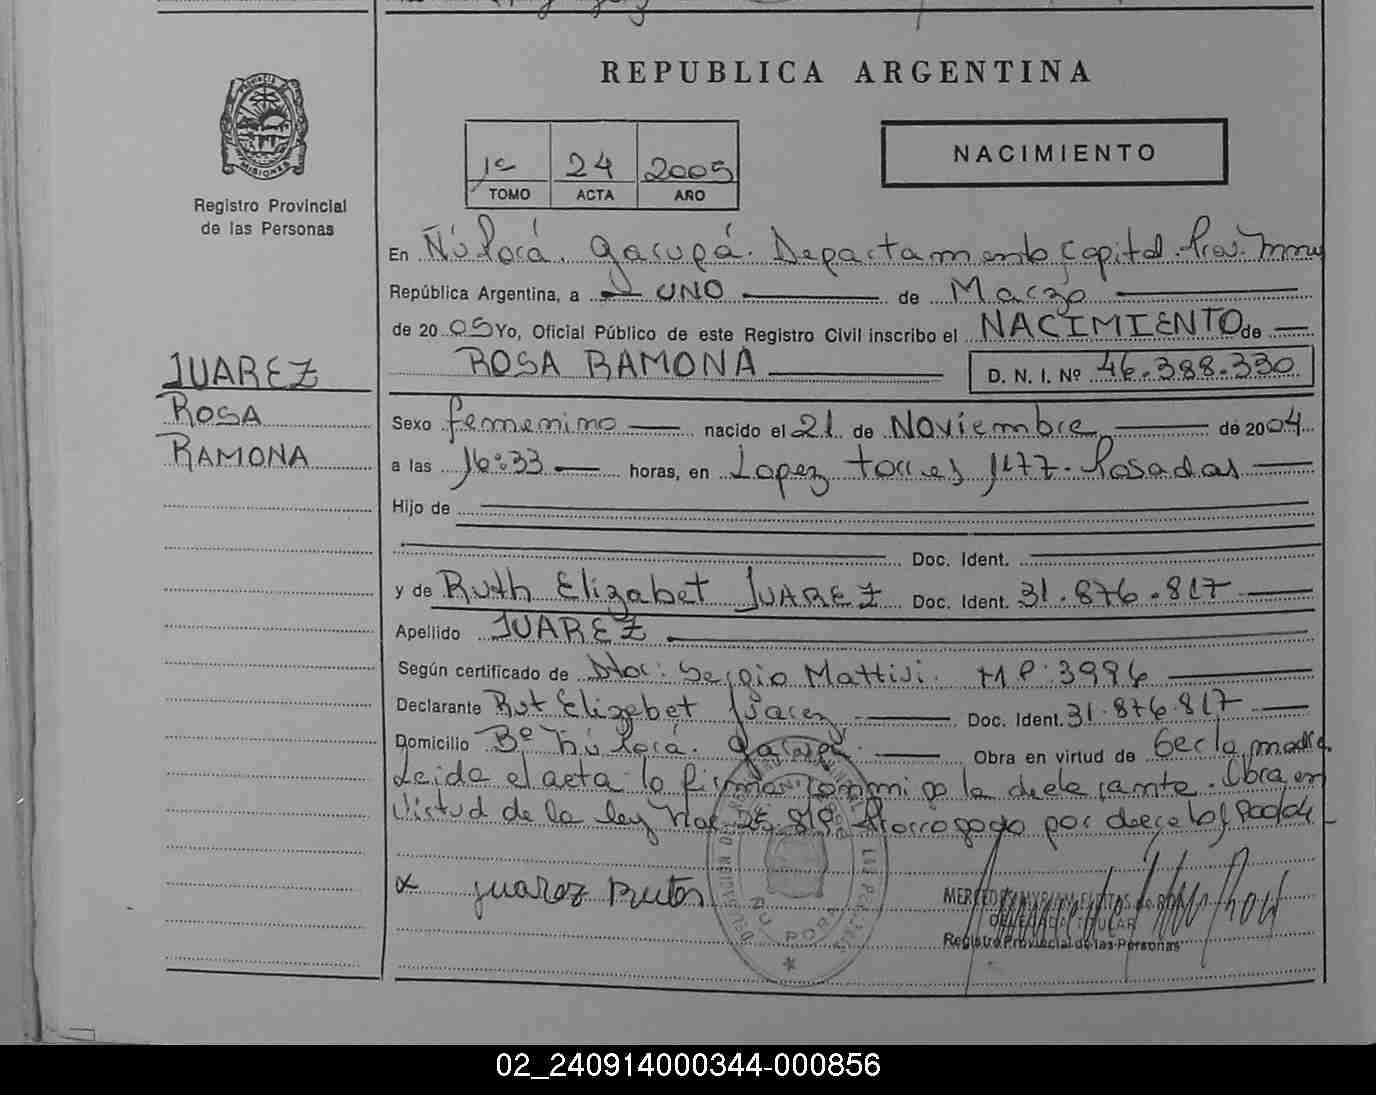 REPUBLICA ARGENTINA
PROVINCIA DE
MISIONES
Registro Provincial
de las Personas
1º 24 2005
TOMO ACTA AÑO
NACIMIENTO
En Ñú Porá. Garupá. Departamento Capital. Prov. Mnes
República Argentina, a UNO de Marzo
de 20 05 Yo, Oficial Público de este Registro Civil inscribo el NACIMIENTO de
ROSA RAMONA D. N. I. Nº 46.388.330
JUAREZ
ROSA
RAMONA
Sexo femenino nacido el 21 de Noviembre de 2004
a las 16:33 horas, en Lopez Torres 1177. Posadas
Hijo de
Doc. Ident.
y de Ruth Elizabet JUAREZ Doc. Ident. 31.876.817
Apellido JUAREZ
Según certificado de Sergio Mattivi. M P: 3996
Declarante Rut Elizabet Juarez Doc. Ident. 31.876.817
Domicilio Bº Ñú Porá. Garupá. Obra en virtud de ser la madre.
Leida el acta la firma conmigo la declarante. Obra en
Virtud de la ley Nac. 25.819 Prorrogado por
x juarez Rut
DELEGADA TITULAR
Registro Provincial de las Personas
ÑU PORA
02_240914000344-000856